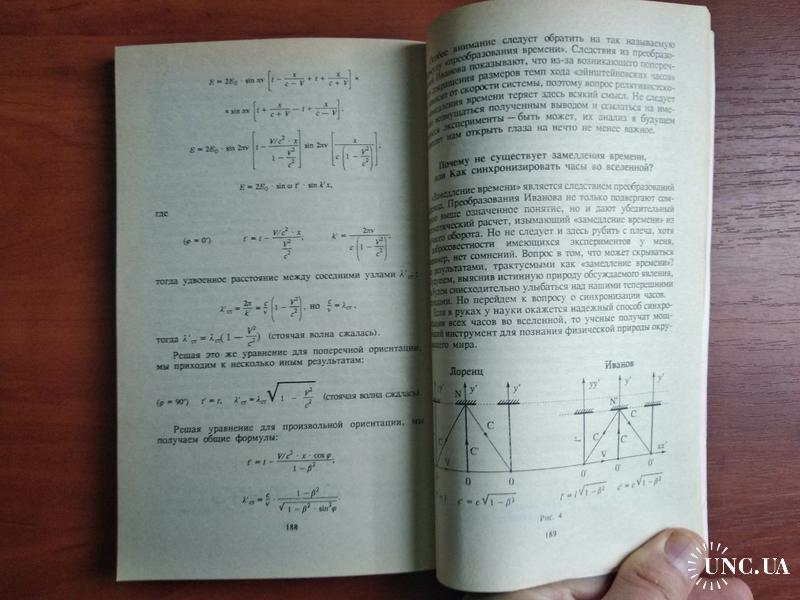 E = 2E₀ · sin πν [t − x/(c − V) + t + x/(c + V)] ×
× sin πν [t + x/(c + V) − t + x/(c − V)],
E = 2E₀ · sin 2πν [t − (V/c² · x)/(1 − V²/c²)] sin 2πν [x/(c(1 − V²/c²))];
E = 2E₀ · sin ω t′ · sin k′x,
где
(φ = 0°) t′ = t − (V/c² · x)/(V²/c²), k′ = 2πν/(c(1 − V²/c²)),
тогда удвоенное расстояние между соседними узлами λ′ст:
λ′ст = 2π/k′ = c/ν (1 − V²/c²), но c/ν = λст.
тогда λ′ст = λст(1 − V²/c²) (стоячая волна сжалась).
Решая это же уравнение для поперечной ориентации,
мы приходим к несколько иным результатам:
(φ = 90°) t′ = t, λ′ст = λст√(1 − V²/c²) (стоячая волна сжалась).
Решая уравнение для произвольной ориентации, мы
получаем общие формулы:
t′ = t − (V/c² · x · cos φ)/(1 − β²),
λ′ст = c/ν · (1 − β²)/√(1 − β² · sin²φ).
188
внимание следует обратить на так называемую
«преобразования времени». Следствия из преобразо-
Иванова показывают, что из-за возникающего попереч-
сокращения размеров темп хода «эйнштейновских часов»
от скорости системы, поэтому вопрос релятивистско-
времени теряет здесь всякий смысл. Не следует
возмущаться полученным выводом и ссылаться на име-
эксперименты — быть может, их анализ в будущем
нам открыть глаза на нечто не менее важное.
Почему не существует замедления времени,
или Как синхронизировать часы во вселенной?
«Замедление времени» является следствием преобразований
Преобразования Иванова не только подвергают сом-
выше означенное понятие, но и дают убедительный
расчет, изымающий «замедление времени» из
оборота. Но не следует и здесь рубить с плеча, хотя
добросовестности имеющихся экспериментов у меня,
нет сомнений. Вопрос в том, что может скрываться
результатами, трактуемыми как «замедление времени»?
выяснив истинную природу обсуждаемого явления,
снисходительно улыбаться над нашими теперешними
Но перейдем к вопросу о синхронизации часов.
Если в руках у науки окажется надежный способ синхро-
всех часов во вселенной, то ученые получат мощ-
инструмент для познания физической природы окру-
мира.
Лоренц Иванов
y′ y′ yy′ y′ y′
N N′
C C C C
C′ C′
V V
0 0 0′ 0′ 0′ xx′
c′ = c√(1−β²) l′ = l√(1−β²) c′ = c√(1−β²)
Рис. 4
189
UNC.UA